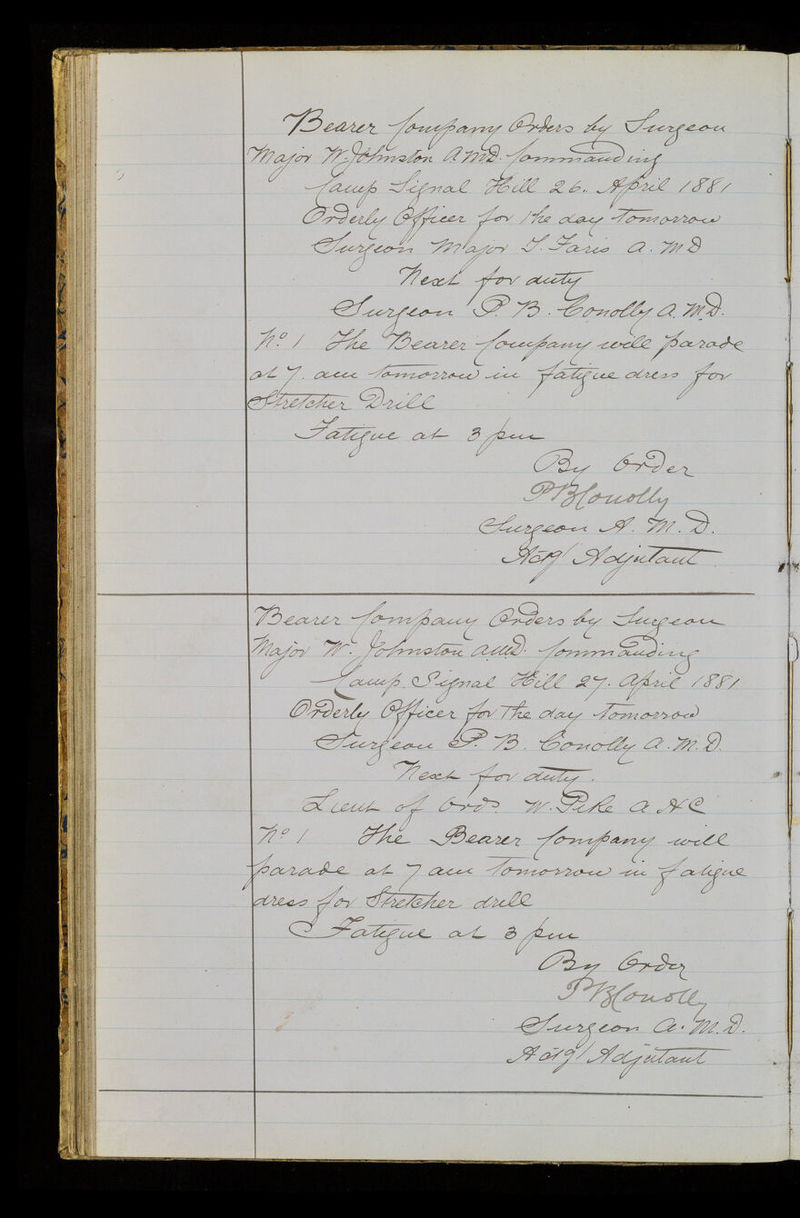 Bearer Company Orders by Surgeon
Major W. Johnston A.M.D. Commanding
Camp Signal Hill 26. April 1881
Orderly Officer for the day tomorrow
Surgeon Major T. Faris A. M D
Next for duty
Surgeon P. B. Conolly A. M. D.
No 1 The Bearer Company will parade
at 7. am tomorrow in fatigue dress for
Stretcher Drill
Fatigue at 3 pm
By Order
P B Conolly
Surgeon A. M. D.
Actg Adjutant
Bearer Company Orders by Surgeon
Major W. Johnston AMD. Commanding
Camp Signal Hill 27. April 1881
Orderly Officer for the day tomorrow
Surgeon P. B. Conolly A. M. D.
Next for duty.
Lieut of Ords. W. Pike A H C
No 1 The Bearer Company will
parade at 7 am tomorrow in fatigue
dress for Stretcher drill
Fatigue at 3 pm
By Order
P B Conolly
Surgeon A. M. D.
Actg Adjutant